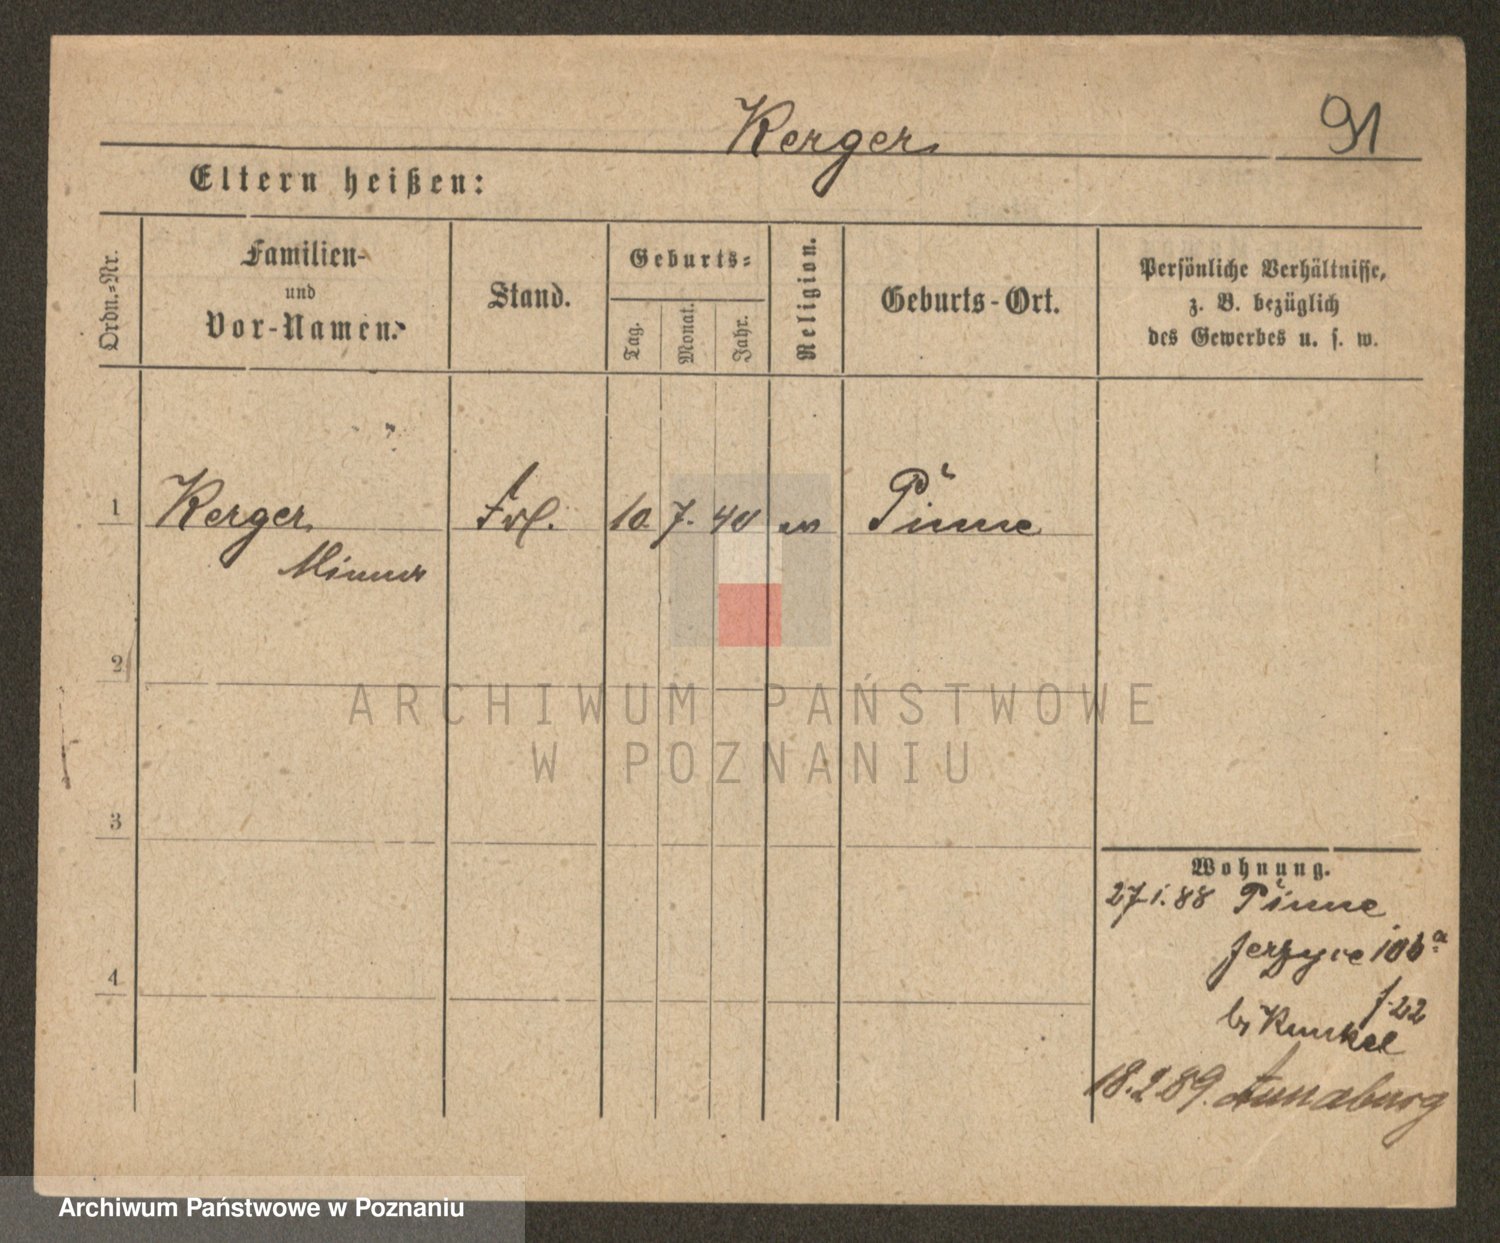 Kerger
91
Eltern heißen:
Ordn.=Nr.
Familien-
und
Vor-Namen.
Stand.
Geburts=
Tag.
Monat.
Jahr.
Religion.
Geburts-Ort.
Persönliche Verhältnisse,
z. B. bezüglich
des Gewerbes u. s. w.
1
Kerger
Minna
Frl.
10. 7. 40
Pinne
2
3
4
Wohnung.
27.1.88 Pinne
Jerzyce 10b a
b/ Kunkel
18.2.89. Annaburg
ARCHIWUM PAŃSTWOWE
W POZNANIU
Archiwum Państwowe w Poznaniu